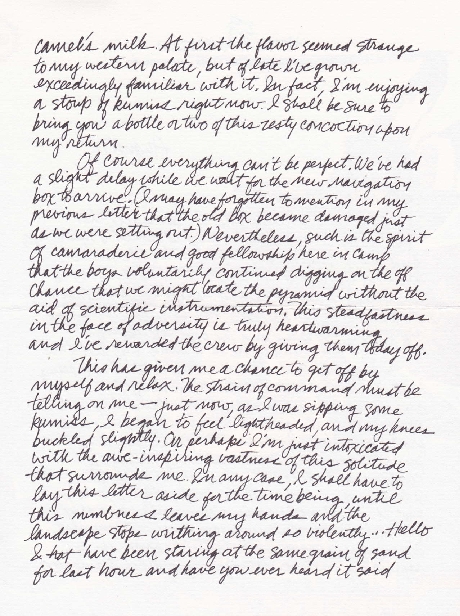 camel's milk. At first the flavor seemed strange
to my western palate, but of late I've grown
exceedingly familiar with it. In fact, I'm enjoying
a stoup of kumiss right now. I shall be sure to
bring you a bottle or two of this zesty concoction upon
my return.
Of course everything can't be perfect. We've had
a slight delay while we wait for the new navigation
box to arrive. (I may have forgotten to mention in my
previous letter that the old box became damaged just
as we were setting out.) Nevertheless, such is the spirit
of camaraderie and good fellowship here in camp
that the boys voluntarily continued digging on the off
chance that we might locate the pyramid without the
aid of scientific instrumentation. This steadfastness
in the face of adversity is truly heartwarming
and I've rewarded the crew by giving them today off.
This has given me a chance to get off by
myself and relax. The strain of command must be
telling on me — just now, as I was sipping some
kumiss, I began to feel lightheaded, and my knees
buckled slightly. Or perhaps I'm just intoxicated
with the awe-inspiring vastness of this solitude
that surrounds me. In any case, I shall have to
lay this letter aside for the time being, until
this numbness leaves my hands and the
landscape stops writhing around so violently... Hello
I hat have been staring at the same grain of sand
for last hour and have you ever heard it said